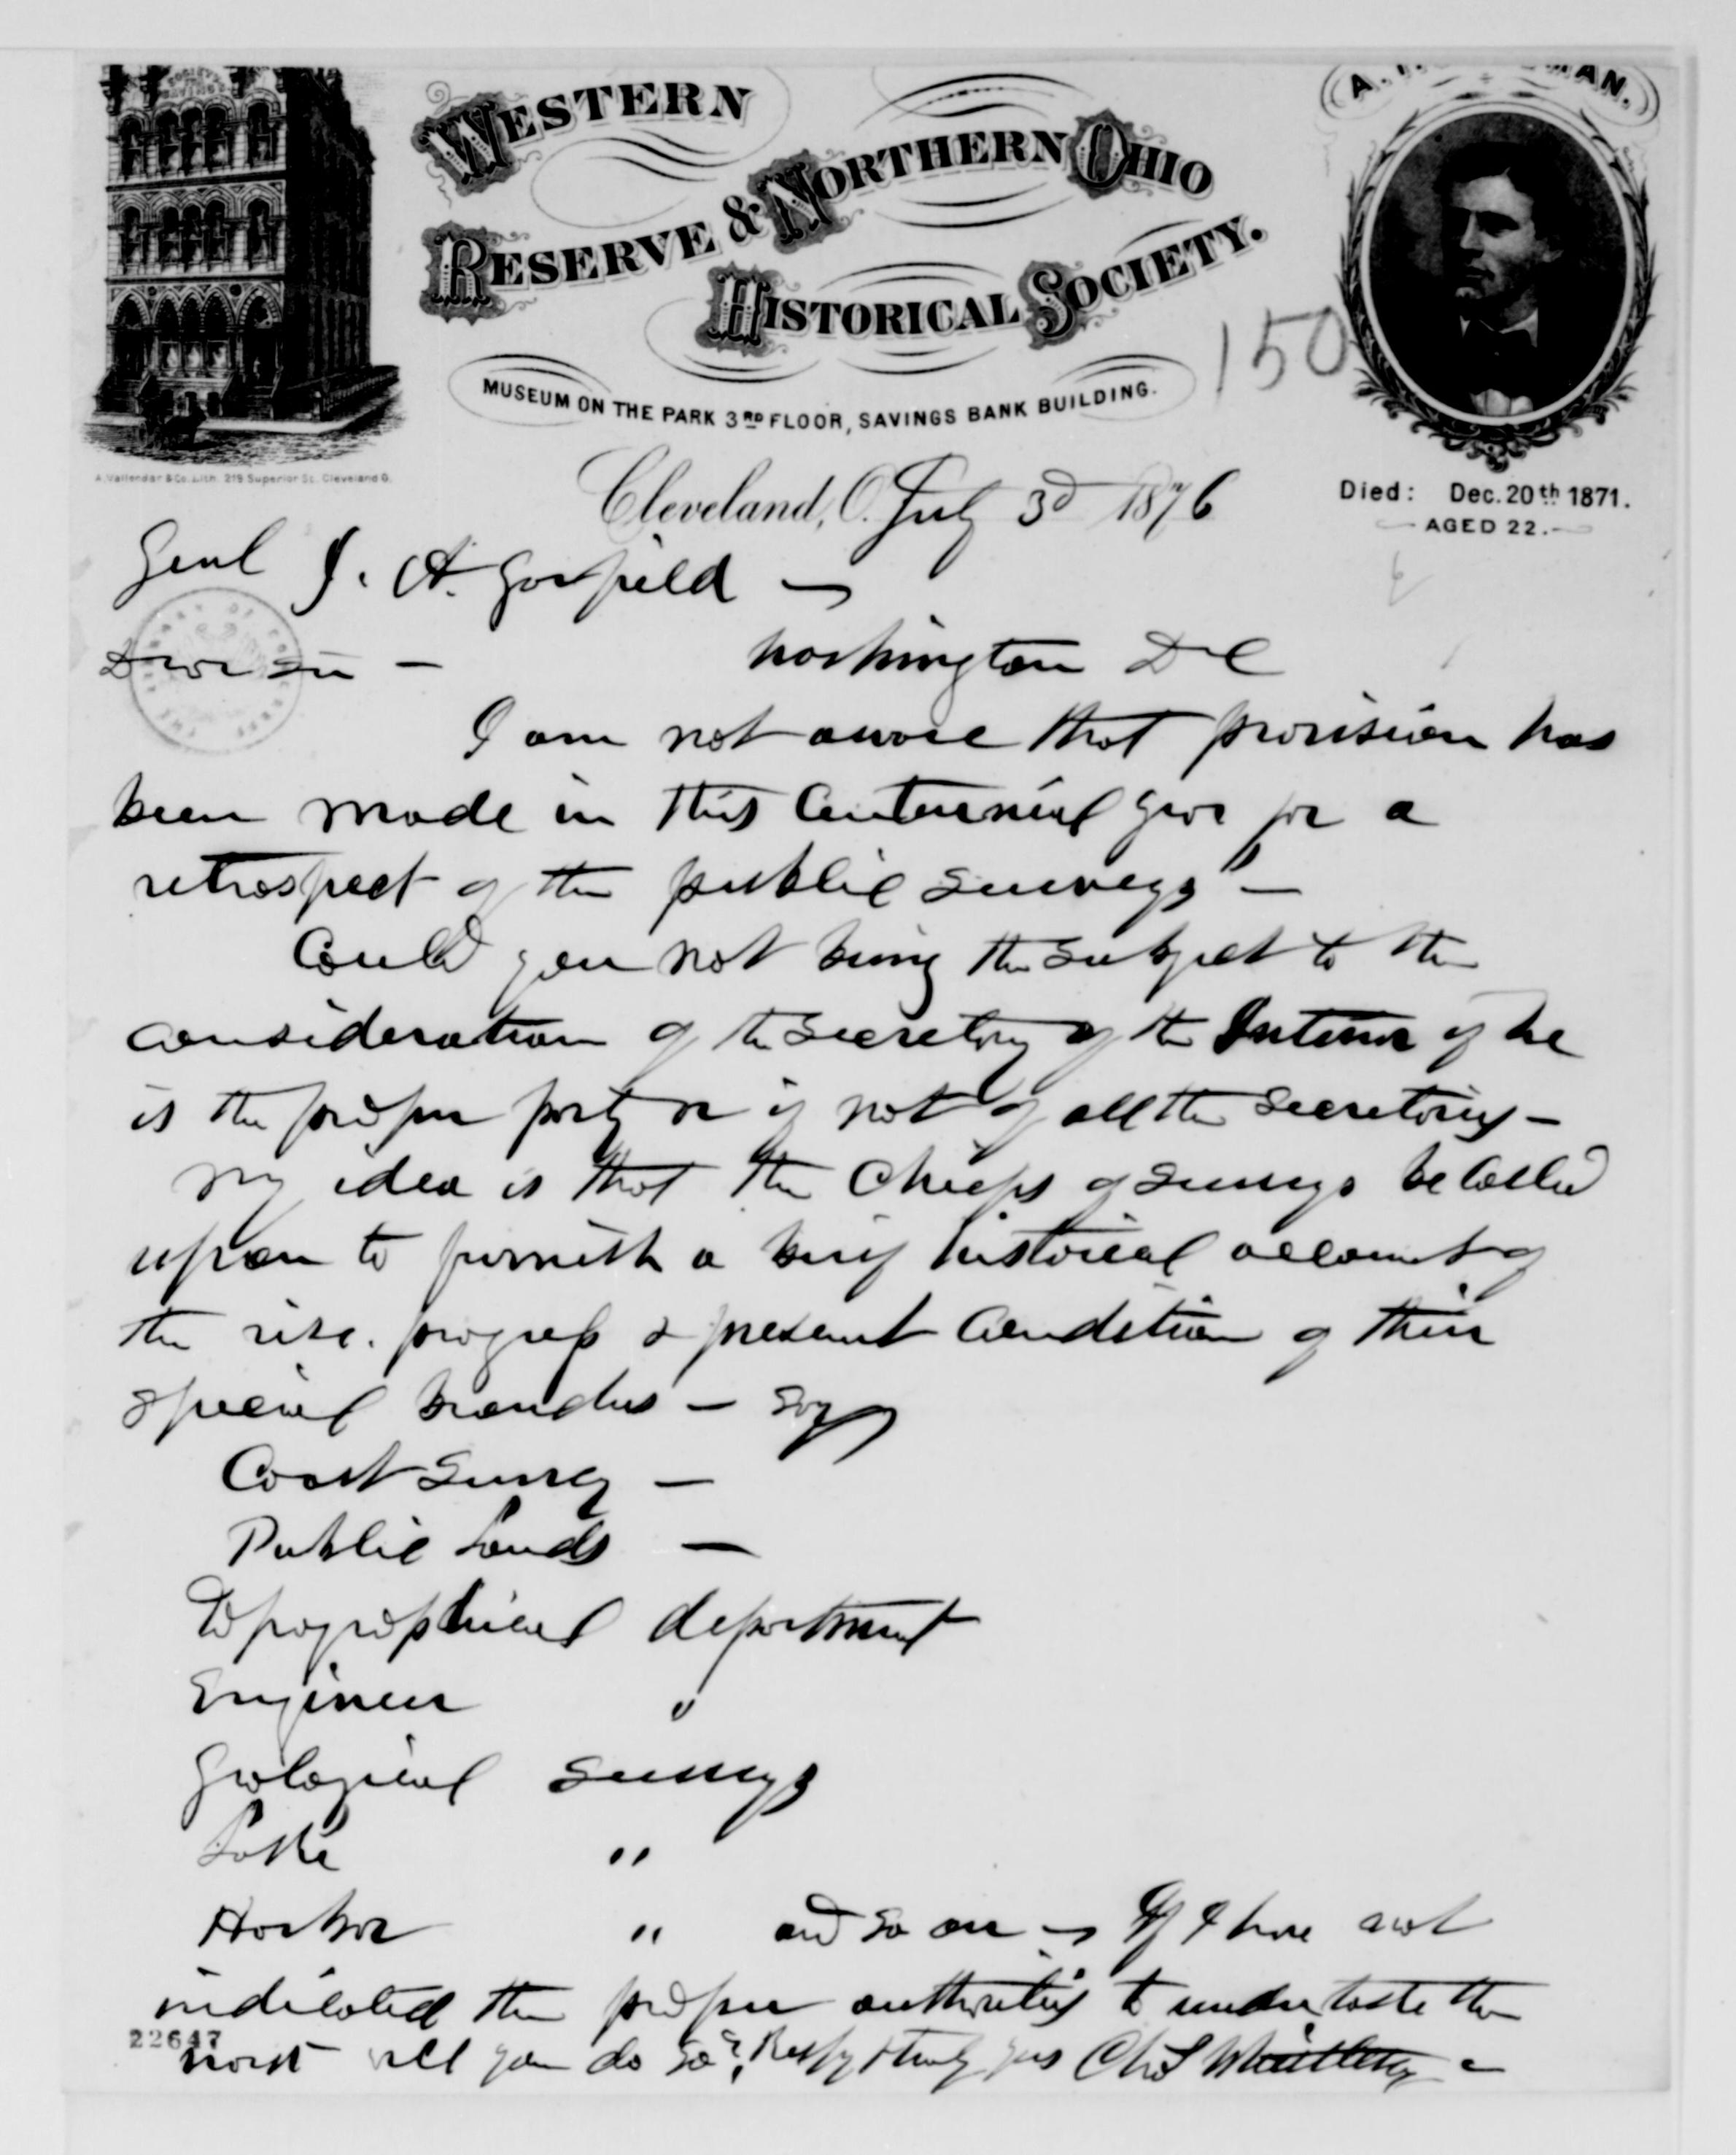 SOCIETY
WESTERN
RESERVE & NORTHERN OHIO
HISTORICAL SOCIETY.
MUSEUM ON THE PARK 3RD FLOOR, SAVINGS BANK BUILDING.
150
A. Vallendar & Co. Lith. 219 Superior St. Cleveland O.
Died: Dec. 20th 1871.
AGED 22.
Cleveland, O. July 3d 1876
Genl J. A. Garfield —
Washington D C
Dear Sir —
I am not aware that provision has
been made in this Centennial year for a
retrospect of the public surveys" —
Could you not bring the subject to the
consideration of the Secretary of the Interior if he
is the proper party or if not of all the Secretaries —
My idea is that the Chiefs of Surveys be called
upon to furnish a brief historical account of
the rise. progress & present condition of their
special branches — say
Coast Survey —
Public Lands —
Topographical department
Engineer "
Geological surveys
Lake "
Harbor " and so on — If I have not
indicated the proper authorities to undertake the
22647
work will you do so? Respy & truly yrs Chs Whittlesey —